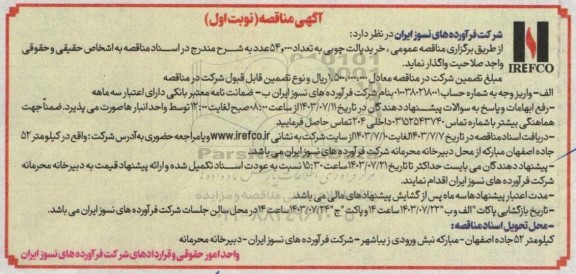 آگهی مناقصه (نوبت اول)
شرکت فرآورده‌های نسوز ایران در نظر دارد:
از طریق برگزاری مناقصه عمومی، خرید پالت چوبی به تعداد ۵۴،۰۰۰ عدد به شرح مندرج در اسناد مناقصه به اشخاص حقیقی و حقوقی
واجد صلاحیت واگذار نماید.
IREFCO
مبلغ تضمین شرکت در مناقصه معادل ۱،۵۰۰،۰۰۰،۰۰۰ ریال و نوع تضمین قابل قبول شرکت در مناقصه
الف - واریز وجه به شماره حساب ۰۱۰۰۳۸۰۲۱۸۰۰۱ بنام شرکت فرآورده های نسوز ایران ب- ضمانت نامه معتبر بانکی دارای اعتبار سه ماهه
- رفع ابهامات و پاسخ به سوالات پیشنهاد دهندگان در تاریخ ۱۴۰۳/۰۷/۱۱ از ساعت ۰۸:۰۰ صبح لغایت ۱۲:۰۰ توسط واحد انبارها صورت می پذیرد. ضمناً جهت
هماهنگی بیشتر با شماره تماس ۰۳۱۵۲۵۴۳۷۴۰ داخلی ۲۰۴ تماس حاصل فرمایید
- دریافت اسناد مناقصه در تاریخ ۱۴۰۳/۷/۷ لغایت ۱۴۰۳/۷/۱۰ از سایت شرکت به نشانی www.irefco.ir و یا مراجعه حضوری به آدرس شرکت: واقع در کیلومتر ۵۲
جاده اصفهان مبارکه از محل دبیرخانه محرمانه شرکت فرآورده های نسوز ایران می باشد.
- پیشنهاد دهندگان می بایست حداکثر تا تاریخ ۱۴۰۳/۰۷/۲۱ ساعت ۱۵:۳۰ نسبت به عودت اسناد تکمیل شده و ارائه پیشنهاد قیمت به دبیرخانه محرمانه
شرکت فرآورده های نسوز ایران اقدام نمایند.
- مدت اعتبار پیشنهادها سه ماه پس از گشایش پیشنهادهای مالی می باشد.
- تاریخ بازگشایی پاکات "الف و ب" ۱۴۰۳/۰۷/۲۳ ساعت ۱۴ و پاکت "ج" ۱۴۰۳/۰۷/۲۴ ساعت ۱۴ در محل سالن جلسات شرکت فرآورده های نسوز ایران می باشد.
- محل تحویل اسناد مناقصه:
کیلومتر ۵۲ جاده اصفهان - مبارکه نبش ورودی زیباشهر - شرکت فرآورده های نسوز ایران - دبیرخانه محرمانه
واحد امور حقوقی و قراردادهای شرکت فرآورده های نسوز ایران